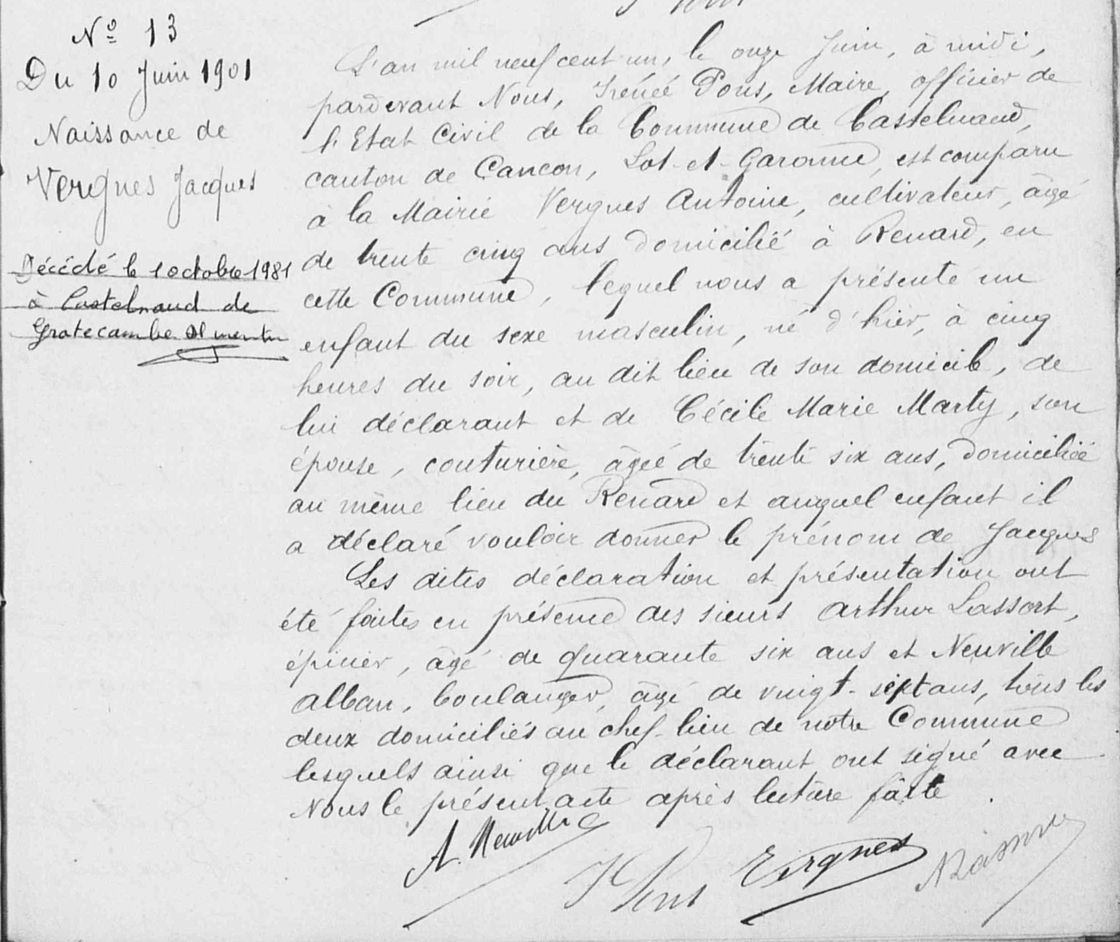 Nº 13
Du 10 Juin 1901
Naissance de
Vergnes Jacques
Décédé le 1 octobre 1981
à Castelnaud de
Gratecambe
L'an mil neuf cent un, le onze Juin, à midi,
pardevant Nous, Irénée Pons, Maire, officier de
l'Etat Civil de la Commune de Castelnaud,
canton de Cancon, Lot-et-Garonne, est comparu
à la Mairie Vergnes Antoine, cultivateur, âgé
de trente cinq ans domicilié à Renard, en
cette Commune, lequel nous a présenté un
enfant du sexe masculin, né d'hier, à cinq
heures du soir, au dit lieu de son domicile, de
lui déclarant et de Cécile Marie Marty, son
épouse, couturière, âgée de trente six ans, domiciliée
au même lieu du Renard et auquel enfant il
a déclaré vouloir donner le prénom de Jacques
Les dites déclaration et présentation ont
été faites en présence des sieurs Arthur Lassort,
épicier, âgé de quarante six ans et Neuville
Alban, boulanger, âgé de vingt-sept ans, tous les
deux domiciliés au chef-lieu de notre Commune
lesquels ainsi que le déclarant ont signé avec
Nous le présent acte après lecture faite.
A. Neuville
I Pons
Vergnes